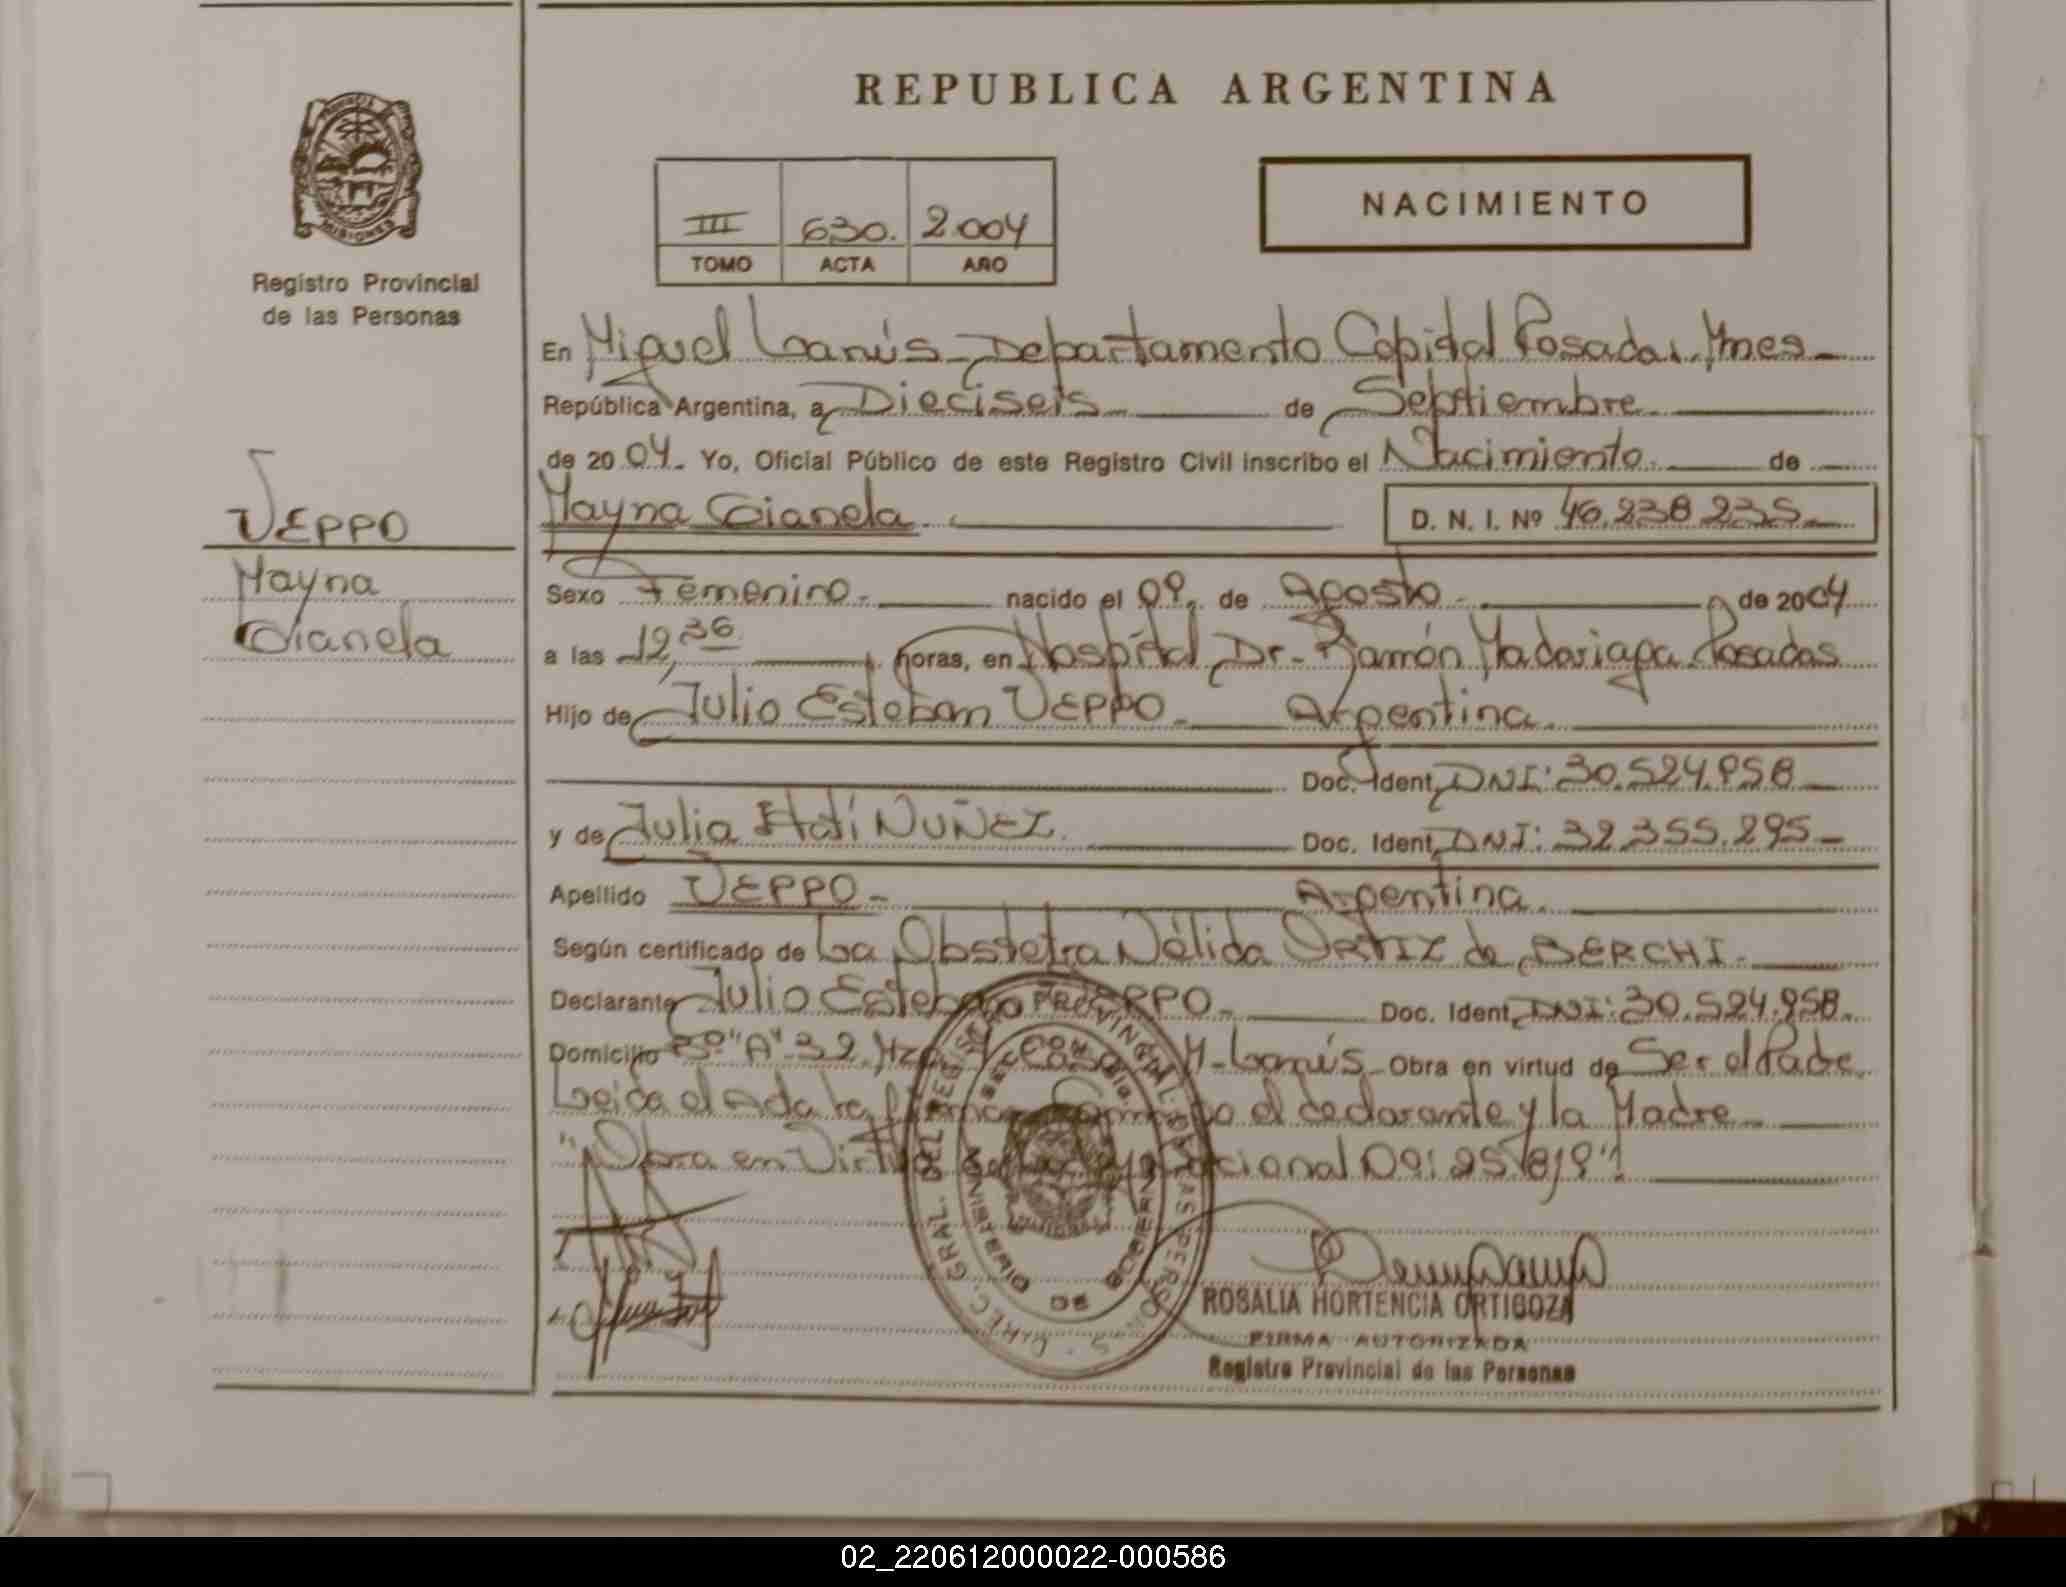 REPUBLICA ARGENTINA
MISIONES
Registro Provincial
de las Personas
III 630. 2.004
TOMO ACTA AÑO
NACIMIENTO
En Miguel Lanús - Departamento Capital Posadas. Mnes -
República Argentina, a Dieciseis de Septiembre
de 2004. Yo, Oficial Público de este Registro Civil inscribo el Nacimiento. de
Mayna Gianela. D. N. I. Nº 46.238.235.
VEPPO
Mayna
Gianela
Sexo Femenino. nacido el 09. de Agosto. de 2004
a las 12,36 horas, en Hospital Dr. Ramón Madariaga. Posadas
Hijo de Julio Esteban VEPPO. Argentina.
Doc. Ident. DNI: 30.524.958
y de Julia Itatí NUÑEZ. Doc. Ident. DNI: 32.355.295 -
Apellido VEPPO - Argentina.
Según certificado de La Obstetra Nélida ORTIZ de BERCHI.
Declarante Julio Esteban VEPPO. Doc. Ident. DNI: 30.524.958.
Domicilio "A" 32 Mza. Casa M. Lanús. Obra en virtud de Ser el Padre.
Leida el Acta la firman Conmigo el declarante y la Madre
"Obra en Virtud Nacional 25.819"
DIREC. GRAL. DEL REGISTRO PROVINCIAL DE LAS PERSONAS
ROSALIA HORTENCIA ORTIGOZA
FIRMA AUTORIZADA
Registro Provincial de las Personas
02_220612000022-000586